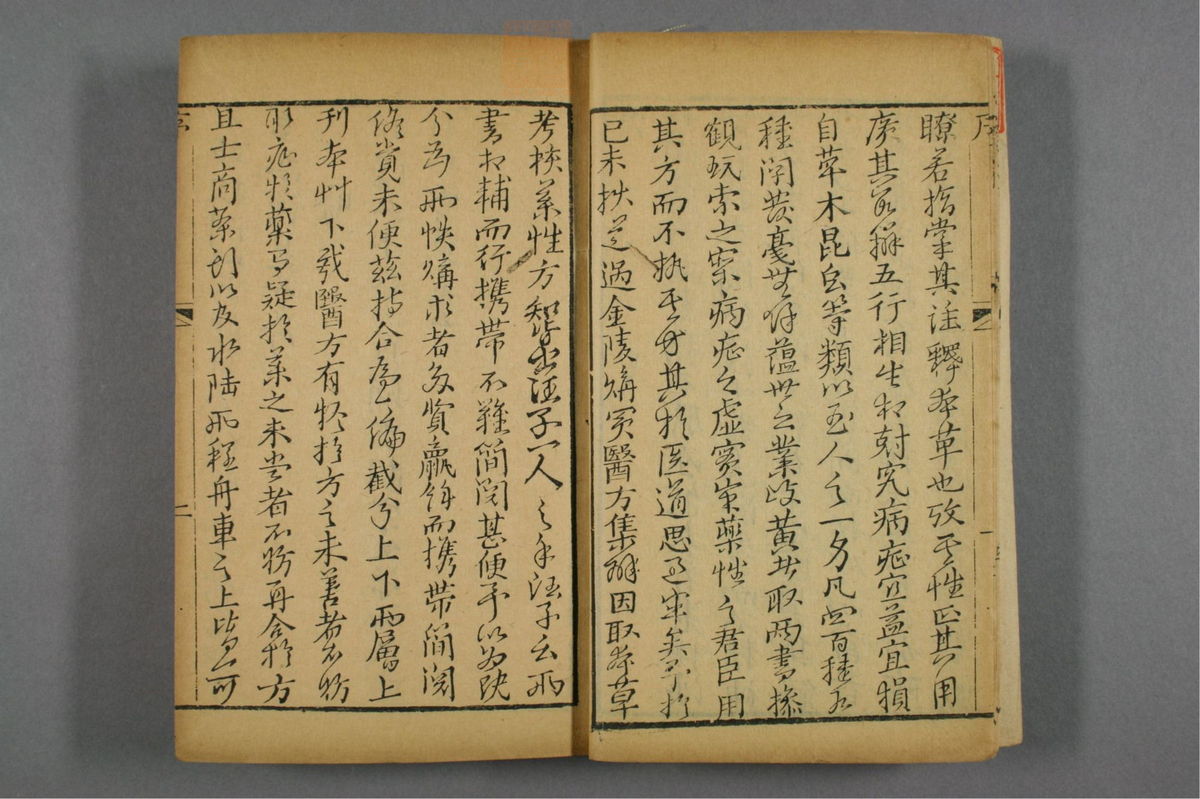 瞭若指掌其註釋本草也攷其性正其用
廣其名辨五行相生相尅究病症宜益宜損
自草木昆虫等類以至人之一身凡四百種有
種闡發毫無餘蘊世之業岐黃者取兩書參
觀玩索之審病症之虛實察藥性之君臣用
其方而不執其方其於医道思過半矣予於
己未秋道過金陵購買醫方集解因取本草
考校藥性方知皆出汪子一人之手汪子云兩
書相輔而行携帶不難簡閱甚便予以為既
分為兩帙購求者多費贏餘而携帶簡閱
終覺未便茲特合為一編截分上下兩層上
刊本艸下載醫方有疑於方之未善者不妨
取症於藥有疑於藥之未當者不妨再合於方
且士商茶訪以及水陆兩程舟車之上皆可
序
一
二